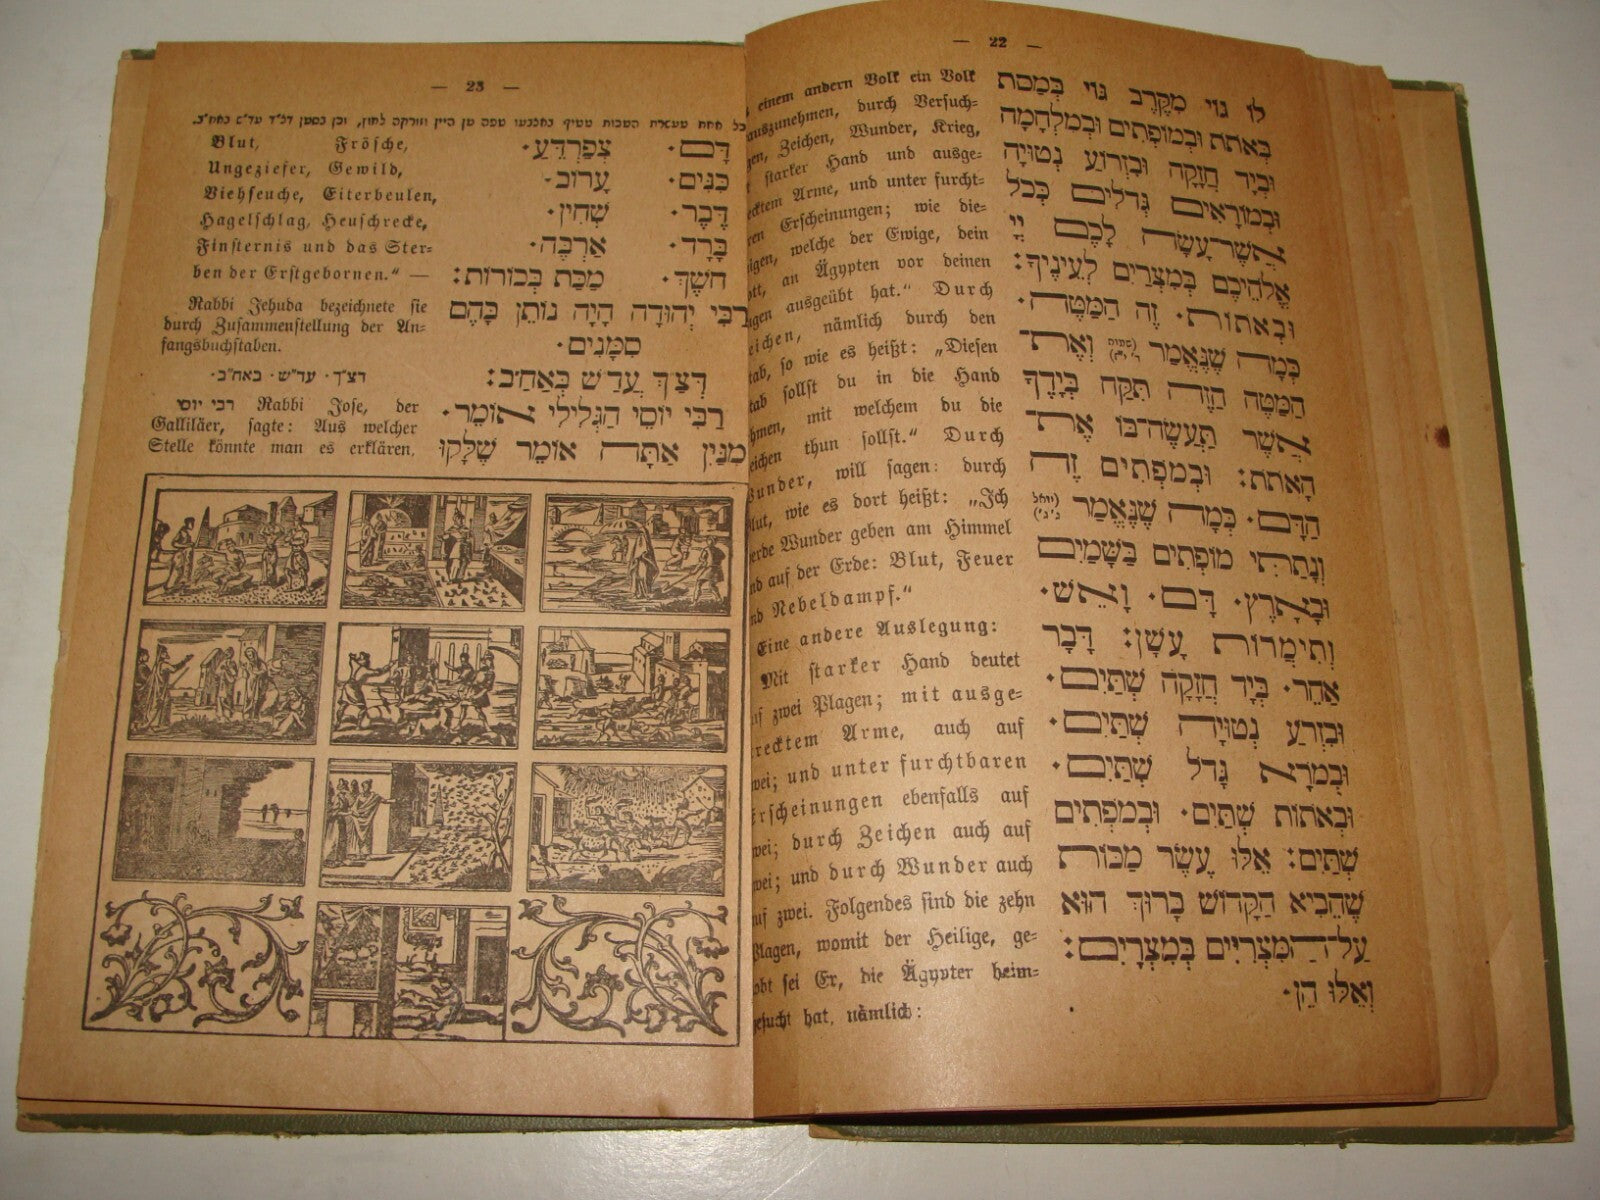 — 22 —
לוֹ גוֹי מִקֶּרֶב גּוֹי בְּמַסֹּת
בְּאֹתֹת וּבְמוֹפְתִים וּבְמִלְחָמָה
וּבְיָד חֲזָקָה וּבִזְרוֹעַ נְטוּיָה
וּבְמוֹרָאִים גְּדֹלִים כְּכֹל
אֲשֶׁר־עָשָׂה לָכֶם יְיָ
אֱלֹהֵיכֶם בְּמִצְרַיִם לְעֵינֶיךָ:
וּבְאֹתוֹת· זֶה הַמַּטֶּה·
כְּמָה שֶׁנֶּאֱמַר (שמות ד׳ י״ז) וְאֶת־
הַמַּטֶּה הַזֶּה תִּקַּח בְּיָדֶךָ
אֲשֶׁר תַּעֲשֶׂה־בּוֹ אֶת־
הָאֹתֹת: וּבְמֹפְתִים זֶה
הַדָּם· כְּמָה שֶׁנֶּאֱמַר (יואל ג׳ ג׳)
וְנָתַתִּי מוֹפְתִים בַּשָּׁמַיִם
וּבָאָרֶץ· דָּם· וָאֵשׁ·
וְתִימֲרוֹת עָשָׁן: דָּבָר
אַחֵר· בְּיָד חֲזָקָה שְׁתַּיִם·
וּבִזְרֹעַ נְטוּיָה שְׁתַּיִם·
וּבְמֹרָא גָּדֹל שְׁתַּיִם·
וּבְאֹתוֹת שְׁתַּיִם· וּבְמֹפְתִים
שְׁתַּיִם: אֵלּוּ עֶשֶׂר מַכּוֹת
שֶׁהֵבִיא הַקָּדוֹשׁ בָּרוּךְ הוּא
עַל־הַמִּצְרִיִּים בְּמִצְרָיִם:
וְאֵלּוּ הֵן·
einem andern Volk ein Volk
auszunehmen, durch Versuch=
gen, Zeichen, Wunder, Krieg,
starker Hand und ausge=
ecktem Arme, und unter furcht=
ren Erscheinungen; wie die=
igen, welche der Ewige, dein
ott, an Ägypten vor deinen
igen ausgeübt hat.“ Durch
eichen, nämlich durch den
tab, so wie es heißt: „Diesen
tab sollst du in die Hand
hmen, mit welchem du die
eichen thun sollst.“ Durch
Wunder, will sagen: durch
lut, wie es dort heißt: „Ich
erde Wunder geben am Himmel
nd auf der Erde: Blut, Feuer
nd Nebeldampf.“
Eine andere Auslegung:
Mit starker Hand deutet
uf zwei Plagen; mit ausge=
recktem Arme, auch auf
wei; und unter furchtbaren
Erscheinungen ebenfalls auf
wei; durch Zeichen auch auf
wei; und durch Wunder auch
uf zwei. Folgendes sind die zehn
Plagen, womit der Heilige, ge=
obt sei Er, die Ägypter heim=
gesucht hat, nämlich:
— 23 —
כל אחת מעשרת המכות מטיף באצבעו טפה מן היין וזורקה לחוץ, וכן בסמן דצ״ך עד״ש באח״ב.
דָּם· צְפַרְדֵּעַ·
כִּנִּים· עָרוֹב·
דֶּבֶר· שְׁחִין·
בָּרָד· אַרְבֶּה·
חשֶׁךְ· מַכַּת בְּכוֹרוֹת:
רַבִּי יְהוּדָה הָיָה נוֹתֵן בָּהֶם
סִמָּנִים·
דְּצַ״ךְ עֲדַ״שׁ בְּאַחַ״ב:
רַבִּי יוֹסֵי הַגְּלִילִי אוֹמֵר·
מִנַּיִן אַתָּה אוֹמֵר שֶׁלָּקוּ
Blut, Frösche,
Ungeziefer, Gewild,
Viehseuche, Eiterbeulen,
Hagelschlag, Heuschrecke,
Finsternis und das Ster=
ben der Erstgebornen.“ —
Rabbi Jehuda bezeichnete sie
durch Zusammenstellung der An=
fangsbuchstaben.
דצ״ך · עד״ש · באח״ב·
רבי יוסי Rabbi Jose, der
Galliläer, sagte: Aus welcher
Stelle könnte man es erklären,